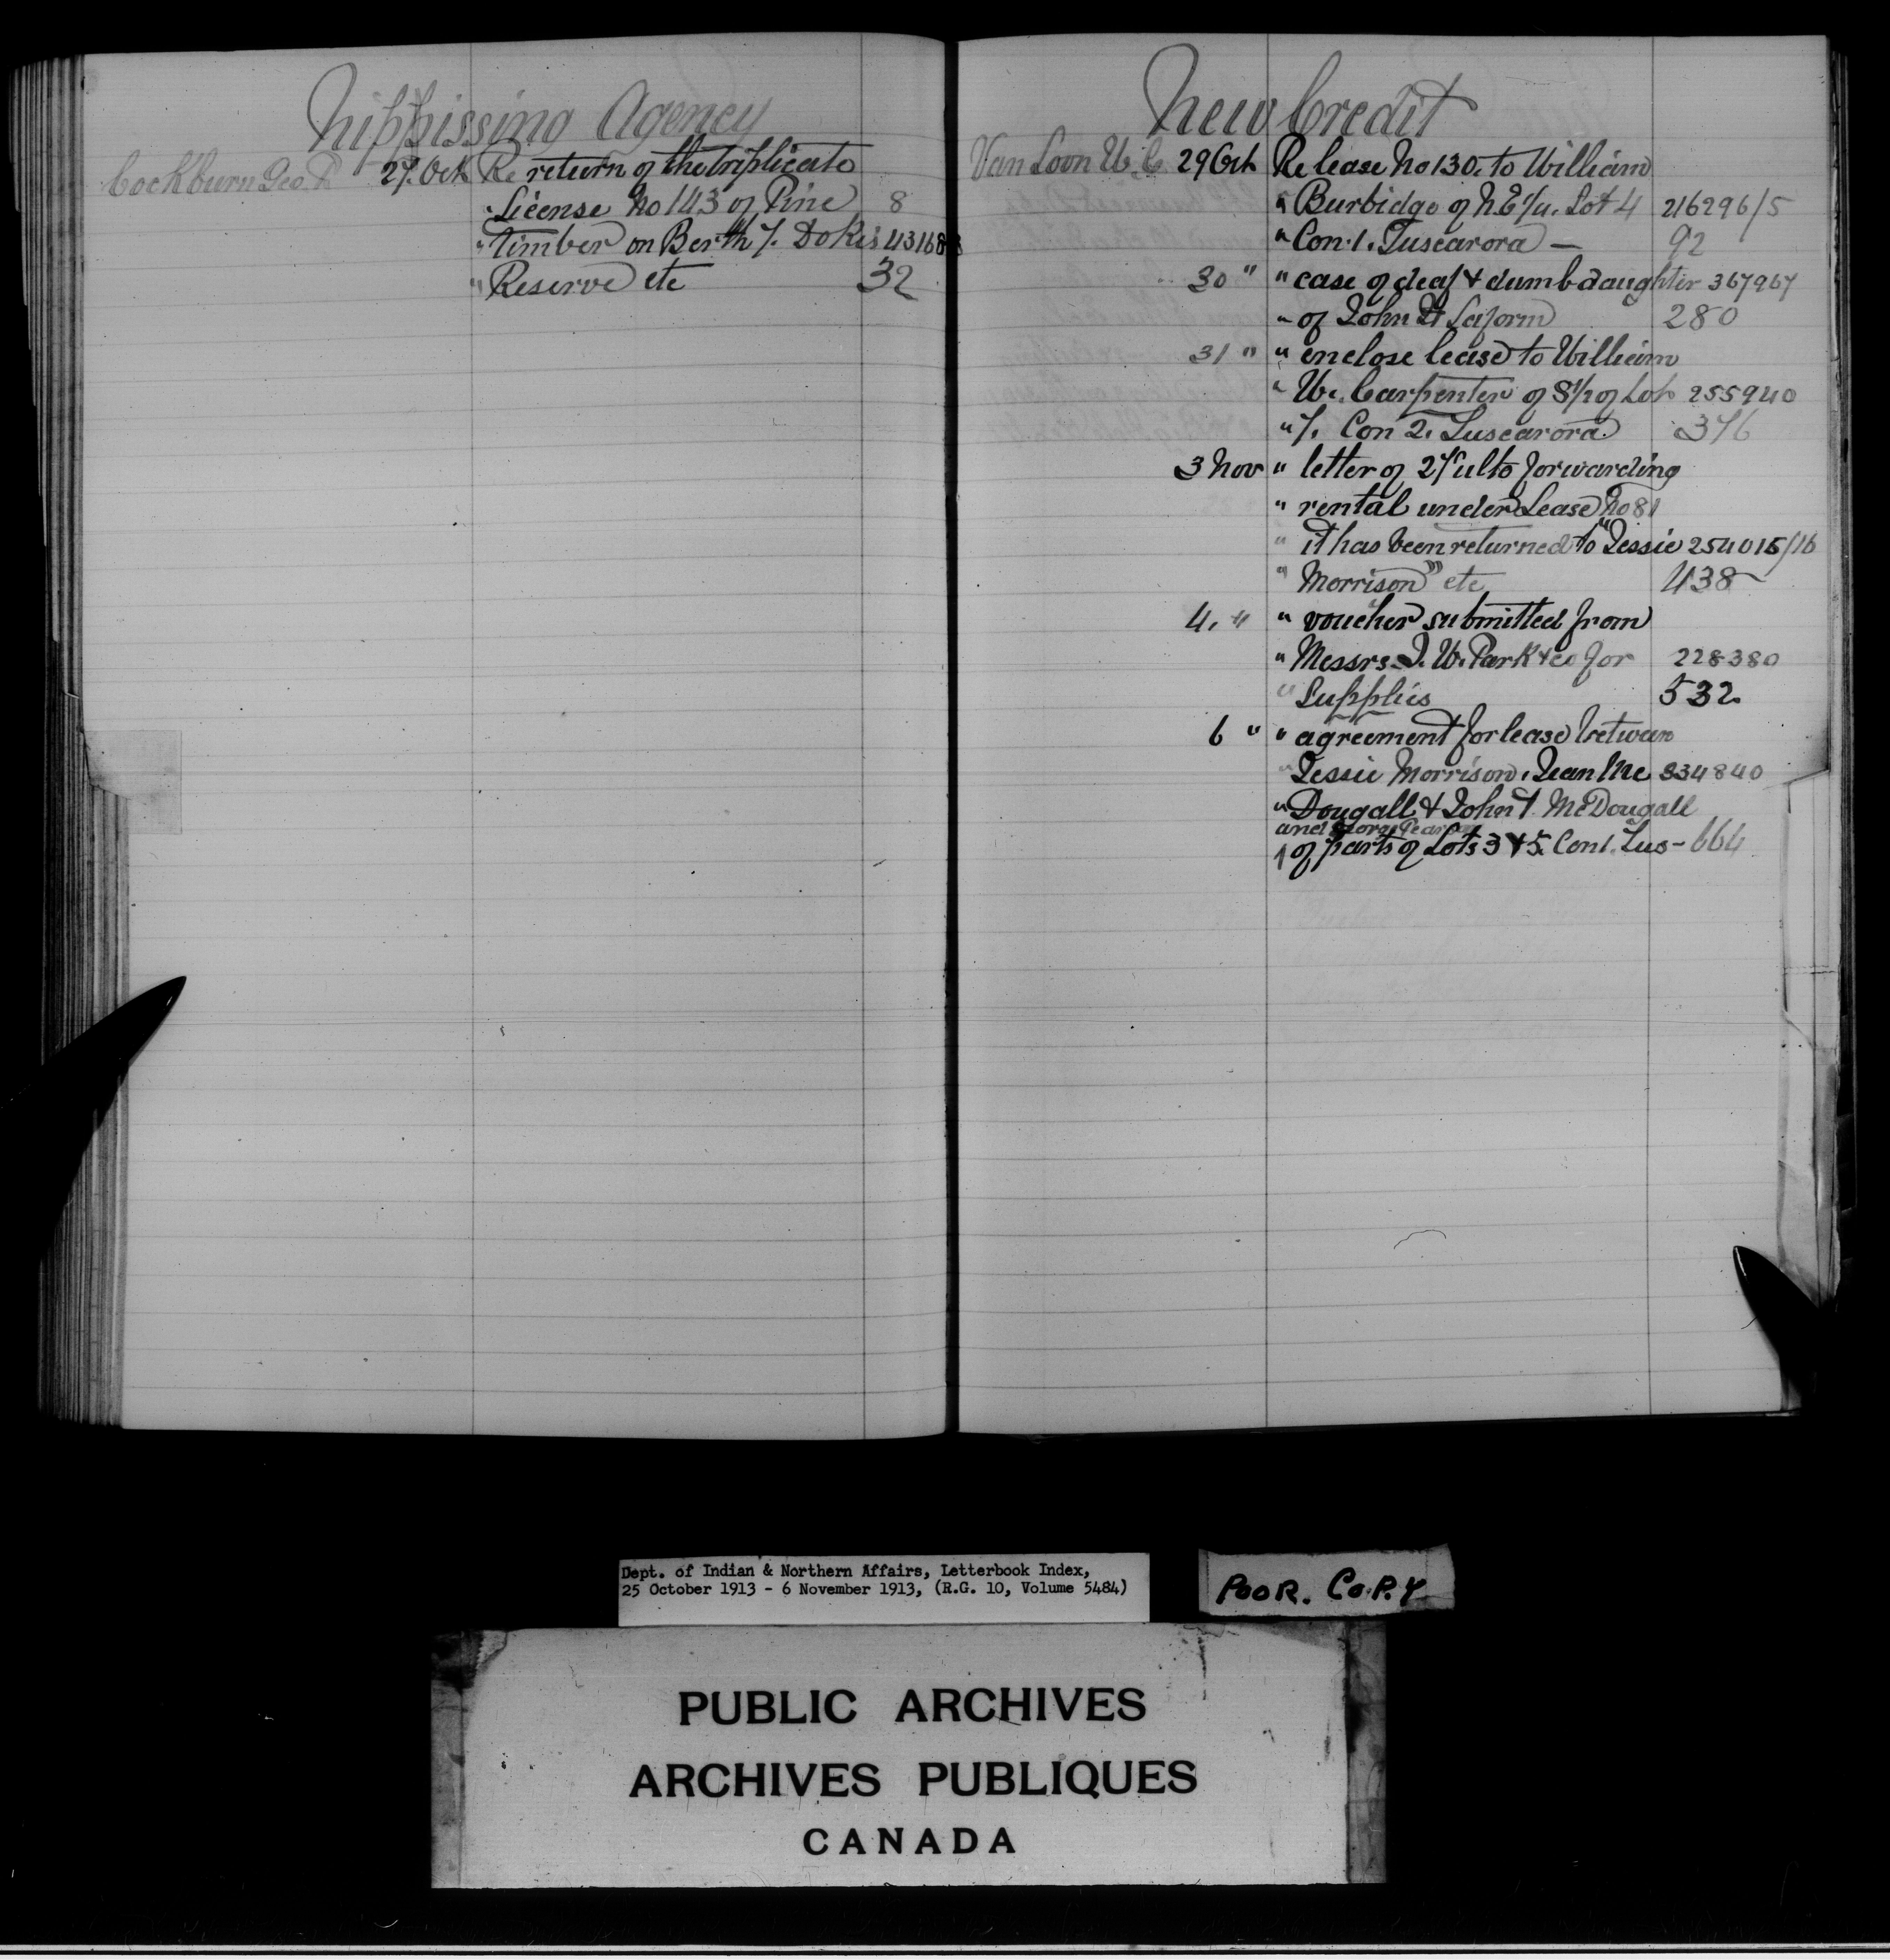 Nippissing Agency
Cockburn Geo. P. 27. Oct. Re return of the triplicate
" License No 143 of Pine 8
" timber on Berth 7. Dokis 43168
" Reserve etc 32
New Credit
Van Loon W. C. 29 Oct. Re lease No 130. to William
" Burbidge of N.E 1/4. Lot 4 216296/5
" Con. 1. Tuscarora — 92
30 " " case of deaf & dumb daughter 367967
" of John Laform 280
31 " " enclose lease to William
" W. Carpenter of S 1/2 of Lot 255940
" 7. Con 2. Tuscarora. 376
3 Nov " letter of 27 ulto forwarding
" rental under Lease No 81
" it has been returned to "Jessie 254015/16
" Morrison" etc 438
4. " " voucher submitted from
" Messrs. J. W. Park & co for 228380
" Supplies 532
6 " " agreement for lease between
" Jessie Morrison, Jean Mc 334840
" Dougall & John T. McDougall
and
of parts of Lots 3 & 5. Con 1. Tus - 664
Dept. of Indian & Northern Affairs, Letterbook Index,
25 October 1913 - 6 November 1913, (R.G. 10, Volume 5484)
POOR. COPY
PUBLIC ARCHIVES
ARCHIVES PUBLIQUES
CANADA